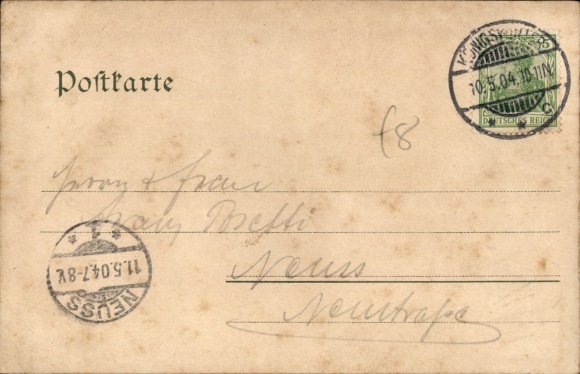 Postkarte
KÖNGSWINTER
10.5.04.10-11N.
* * c
DEUTSCHES REICH
f8
Herrn & Frau
Franz Josetti
Neuss
Neustraße
* 1 *
11.5.04.7-8V.
NEUSS